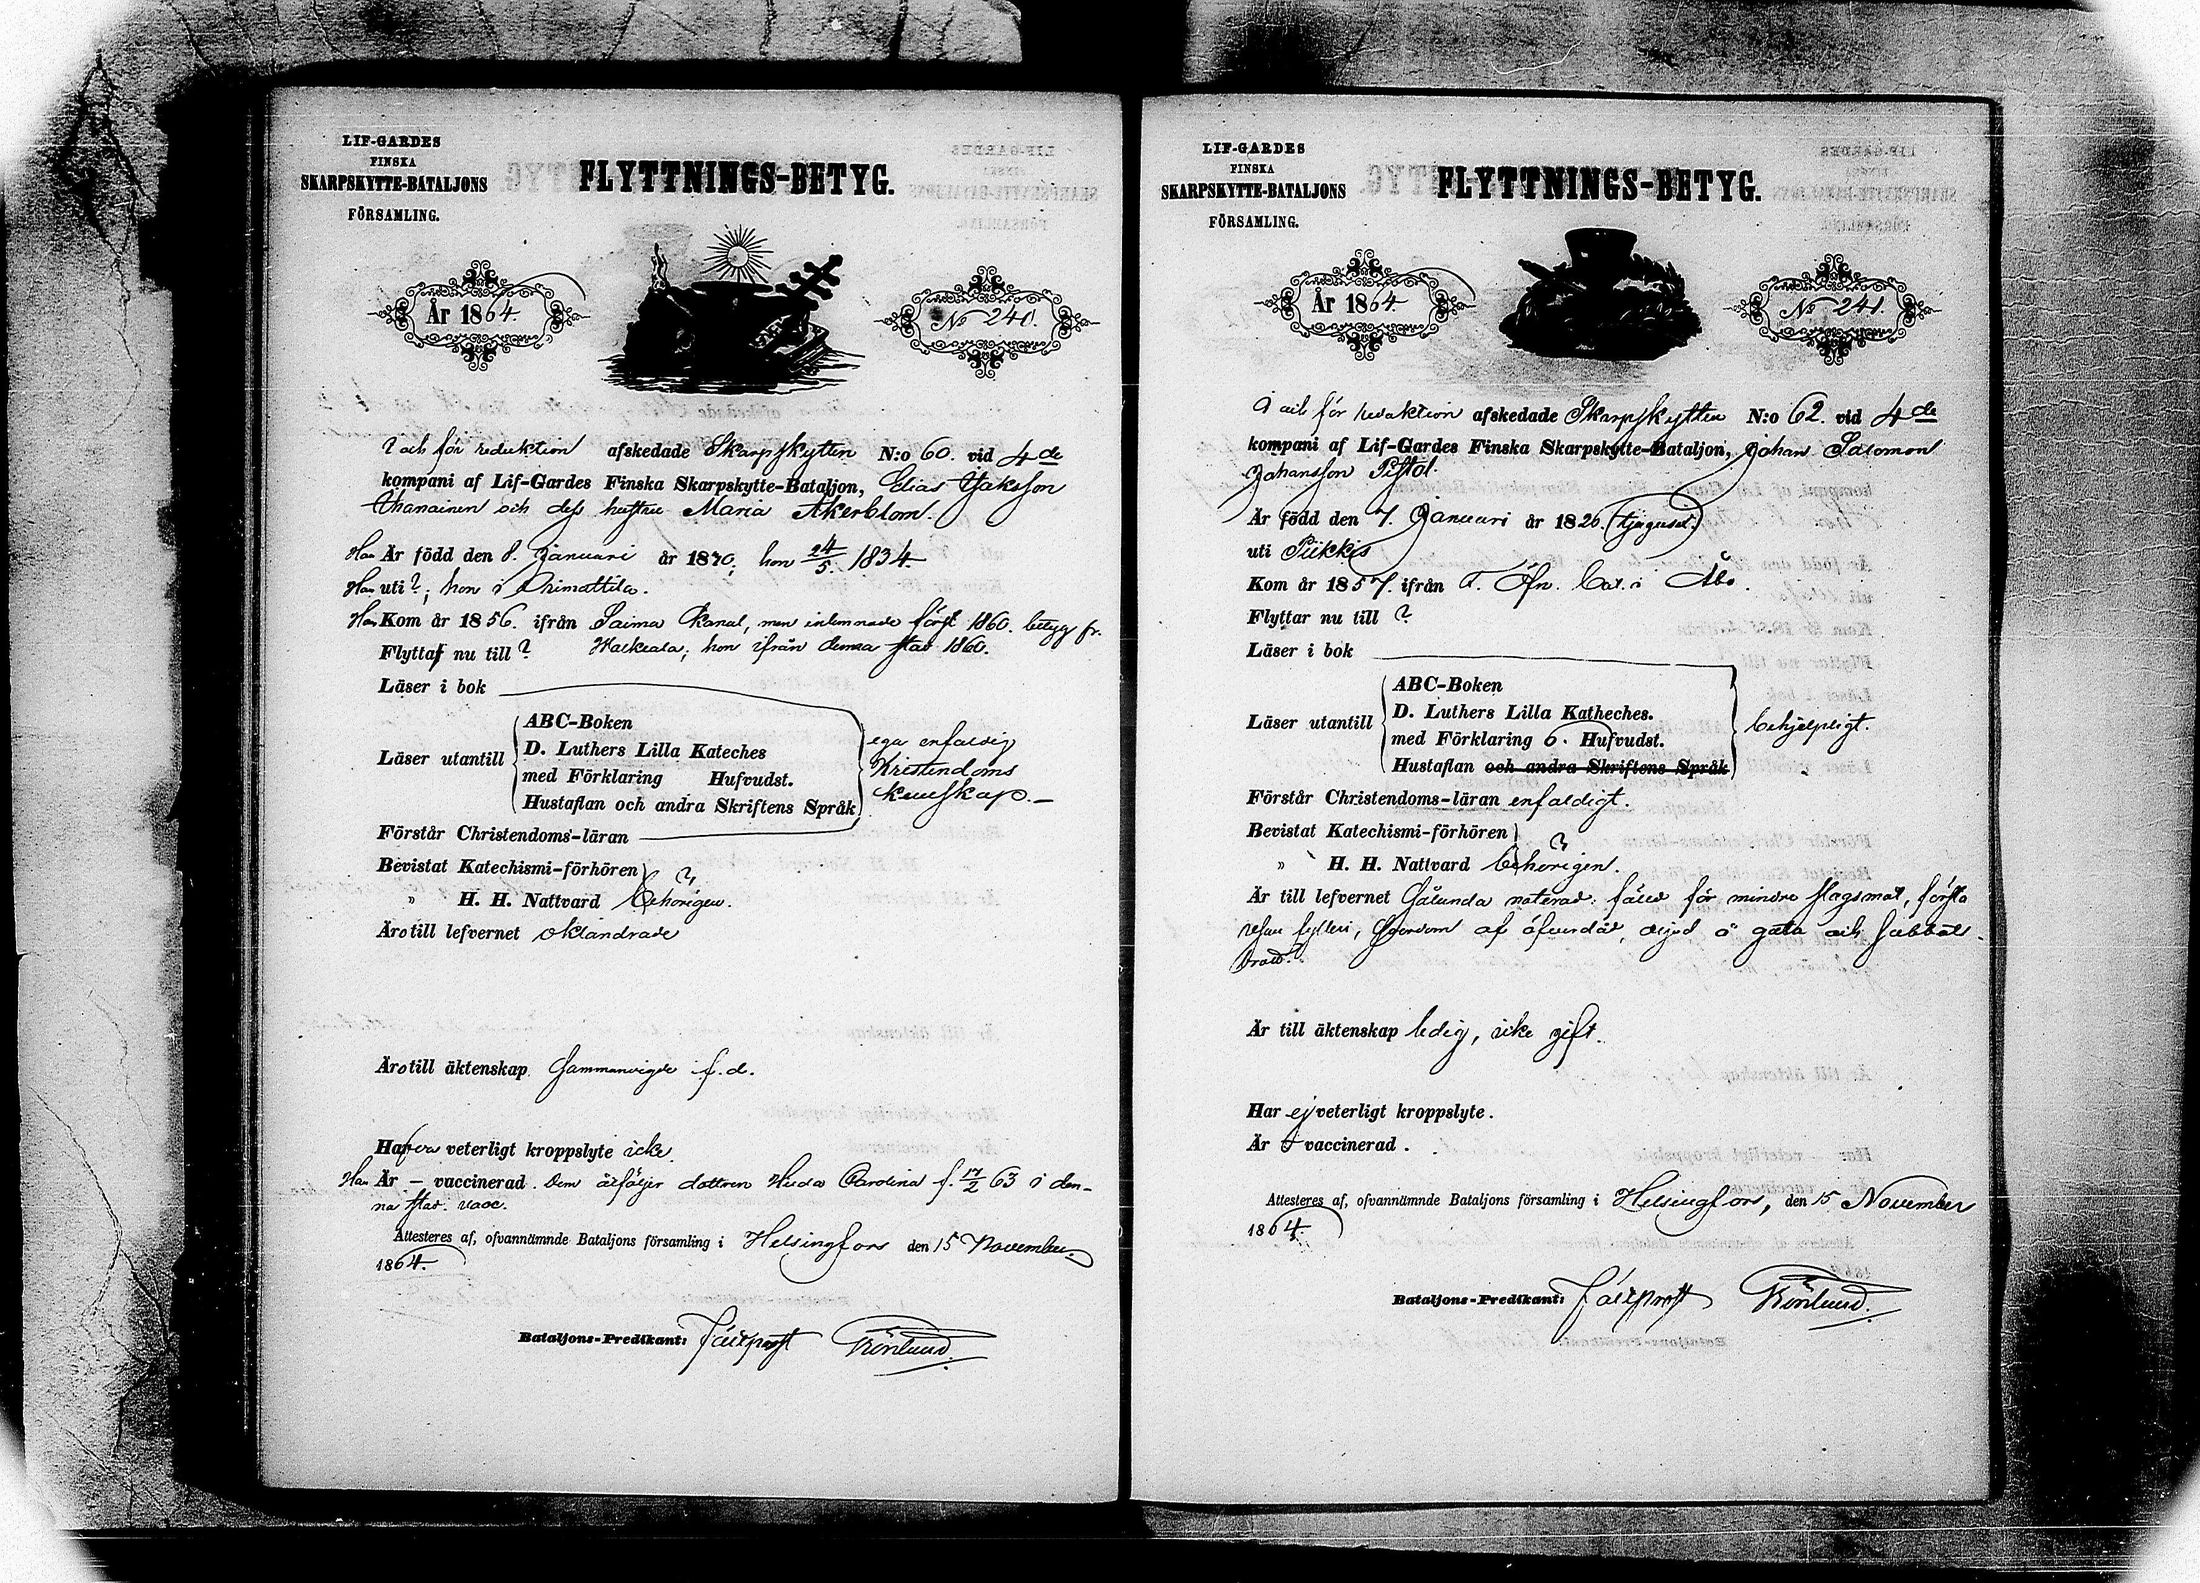 LIF-GARDES
FINSKA
SKARPSKYTTE-BATALJONS
FÖRSAMLING.
FLYTTNINGS-BETYG.
År 1864.
No 240.
för reduktion afskedade Skarpskytten N:o 60. vid 4de
kompani af Lif-Gardes Finska Skarpskytte-Bataljon, Elias
och dess hustru Maria Åkerblom.
Han Är född den 8. Januari år 1830; hon 24/5 1834
Han uti ?; hon i Orimattila.
Han Kom år 1856. ifrån Saima Kanal, men inlemnade först 1860. betyg fr.
Flytta nu till? Walkeala; hon ifrån denna stad 1860.
Läser i bok
Läser utantill
ABC-Boken
D. Luthers Lilla Kateches
med Förklaring Hufvudst.
Hustaflan och andra Skriftens Språk
ega enfaldig
Kristendoms
kunskap.—
Förstår Christendoms-läran
Bevistat Katechismi-förhören
„ H. H. Nattvard behörigen. ?
Äro till lefvernet oklandrade
Äro till äktenskap Sammanvigde f.d.
Hafva veterligt kroppslyte icke
Han Är – vaccinerad. Dem åtföljer dottren Hilda Carolina f. 17/2 63 i den-
na stad. vacc.
Attesteres af, ofvannämnde Bataljons församling i Helsingfors den 15 November
1864.
Bataljons-Predikant: Fältprost
LIF-GARDES
FINSKA
SKARPSKYTTE-BATALJONS
FÖRSAMLING.
FLYTTNINGS-BETYG.
År 1864.
No 241.
för reduktion afskedade Skarpskytten N:o 62. vid 4de
kompani af Lif-Gardes Finska Skarpskytte-Bataljon, Johan Salomon
Johansson Pistol.
Är född den 7. Januari år 1826. (tjuguset.)
uti Piikkis
Kom år 1857. ifrån F. Öfn. Bat. i Åbo.
Flyttar nu till ?
Läser i bok
Läser utantill
ABC-Boken
D. Luthers Lilla Katheches.
med Förklaring 6. Hufvudst.
Hustaflan och andra Skriftens Språk
behjelpligt.
Förstår Christendoms-läran enfaldigt.
Bevistat Katechismi-förhören
„ H. H. Nattvard behörigen. ?
Är till lefvernet Sålunda noterad: fäld för mindre slagsmål, första
resan fylleri, af å gata och sabbats
brott.
Är till äktenskap ledig, icke gift.
Har ej veterligt kroppslyte.
Är vaccinerad.
Attesteres af, ofvannämnde Bataljons församling i Helsingfors, den 15 November
1864.
Bataljons-Predikant: Fältprost